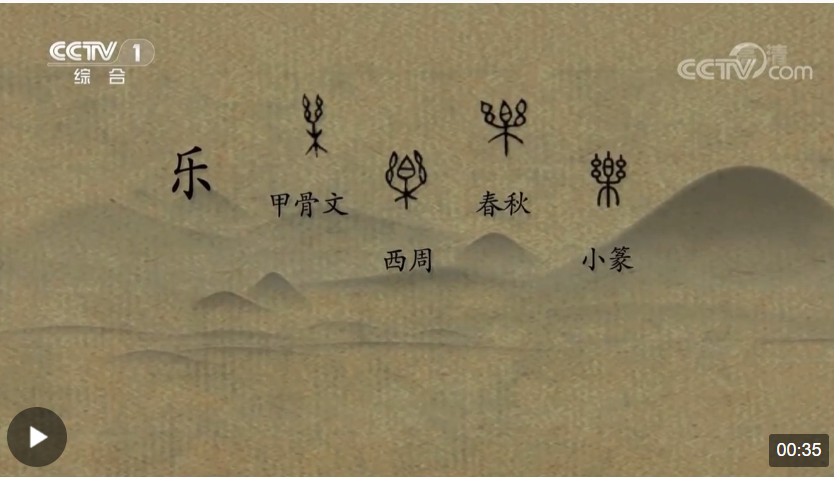 CCTV 1
综合
CCTV.com
高清
乐
甲骨文
西周
春秋
小篆
00:35